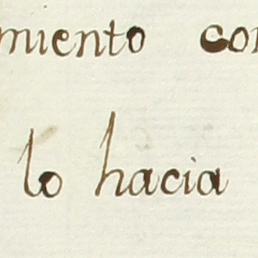 miento co
lo hacia